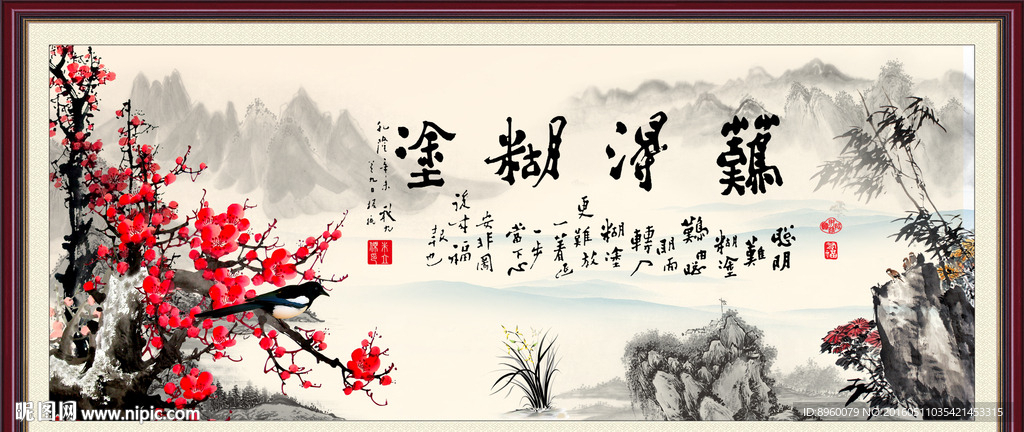 難得糊塗
聰明
難
糊塗
難由聰
明而
轉入
糊塗
更難放
一著退
一步
當下心
安非圖
後來福
報也
乾隆辛未秋九
昵图网 www.nipic.com
ID:8960079 NO:20160511035421453315